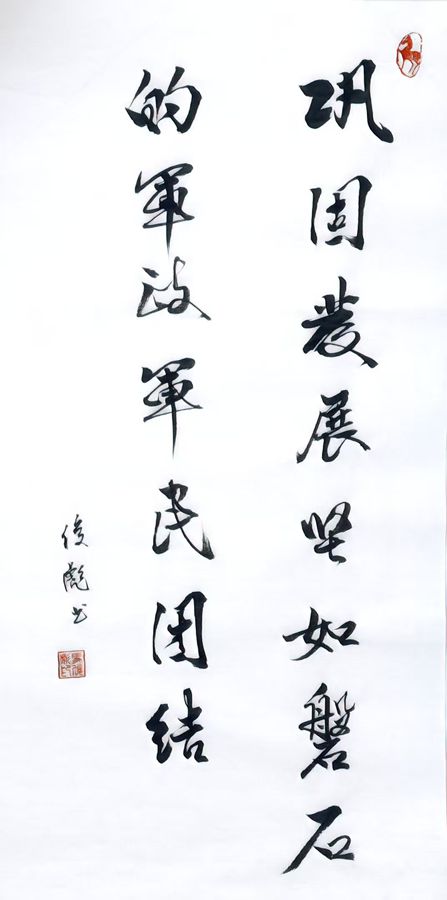 巩固發展坚如磐石
的軍政軍民团结
俊彪书